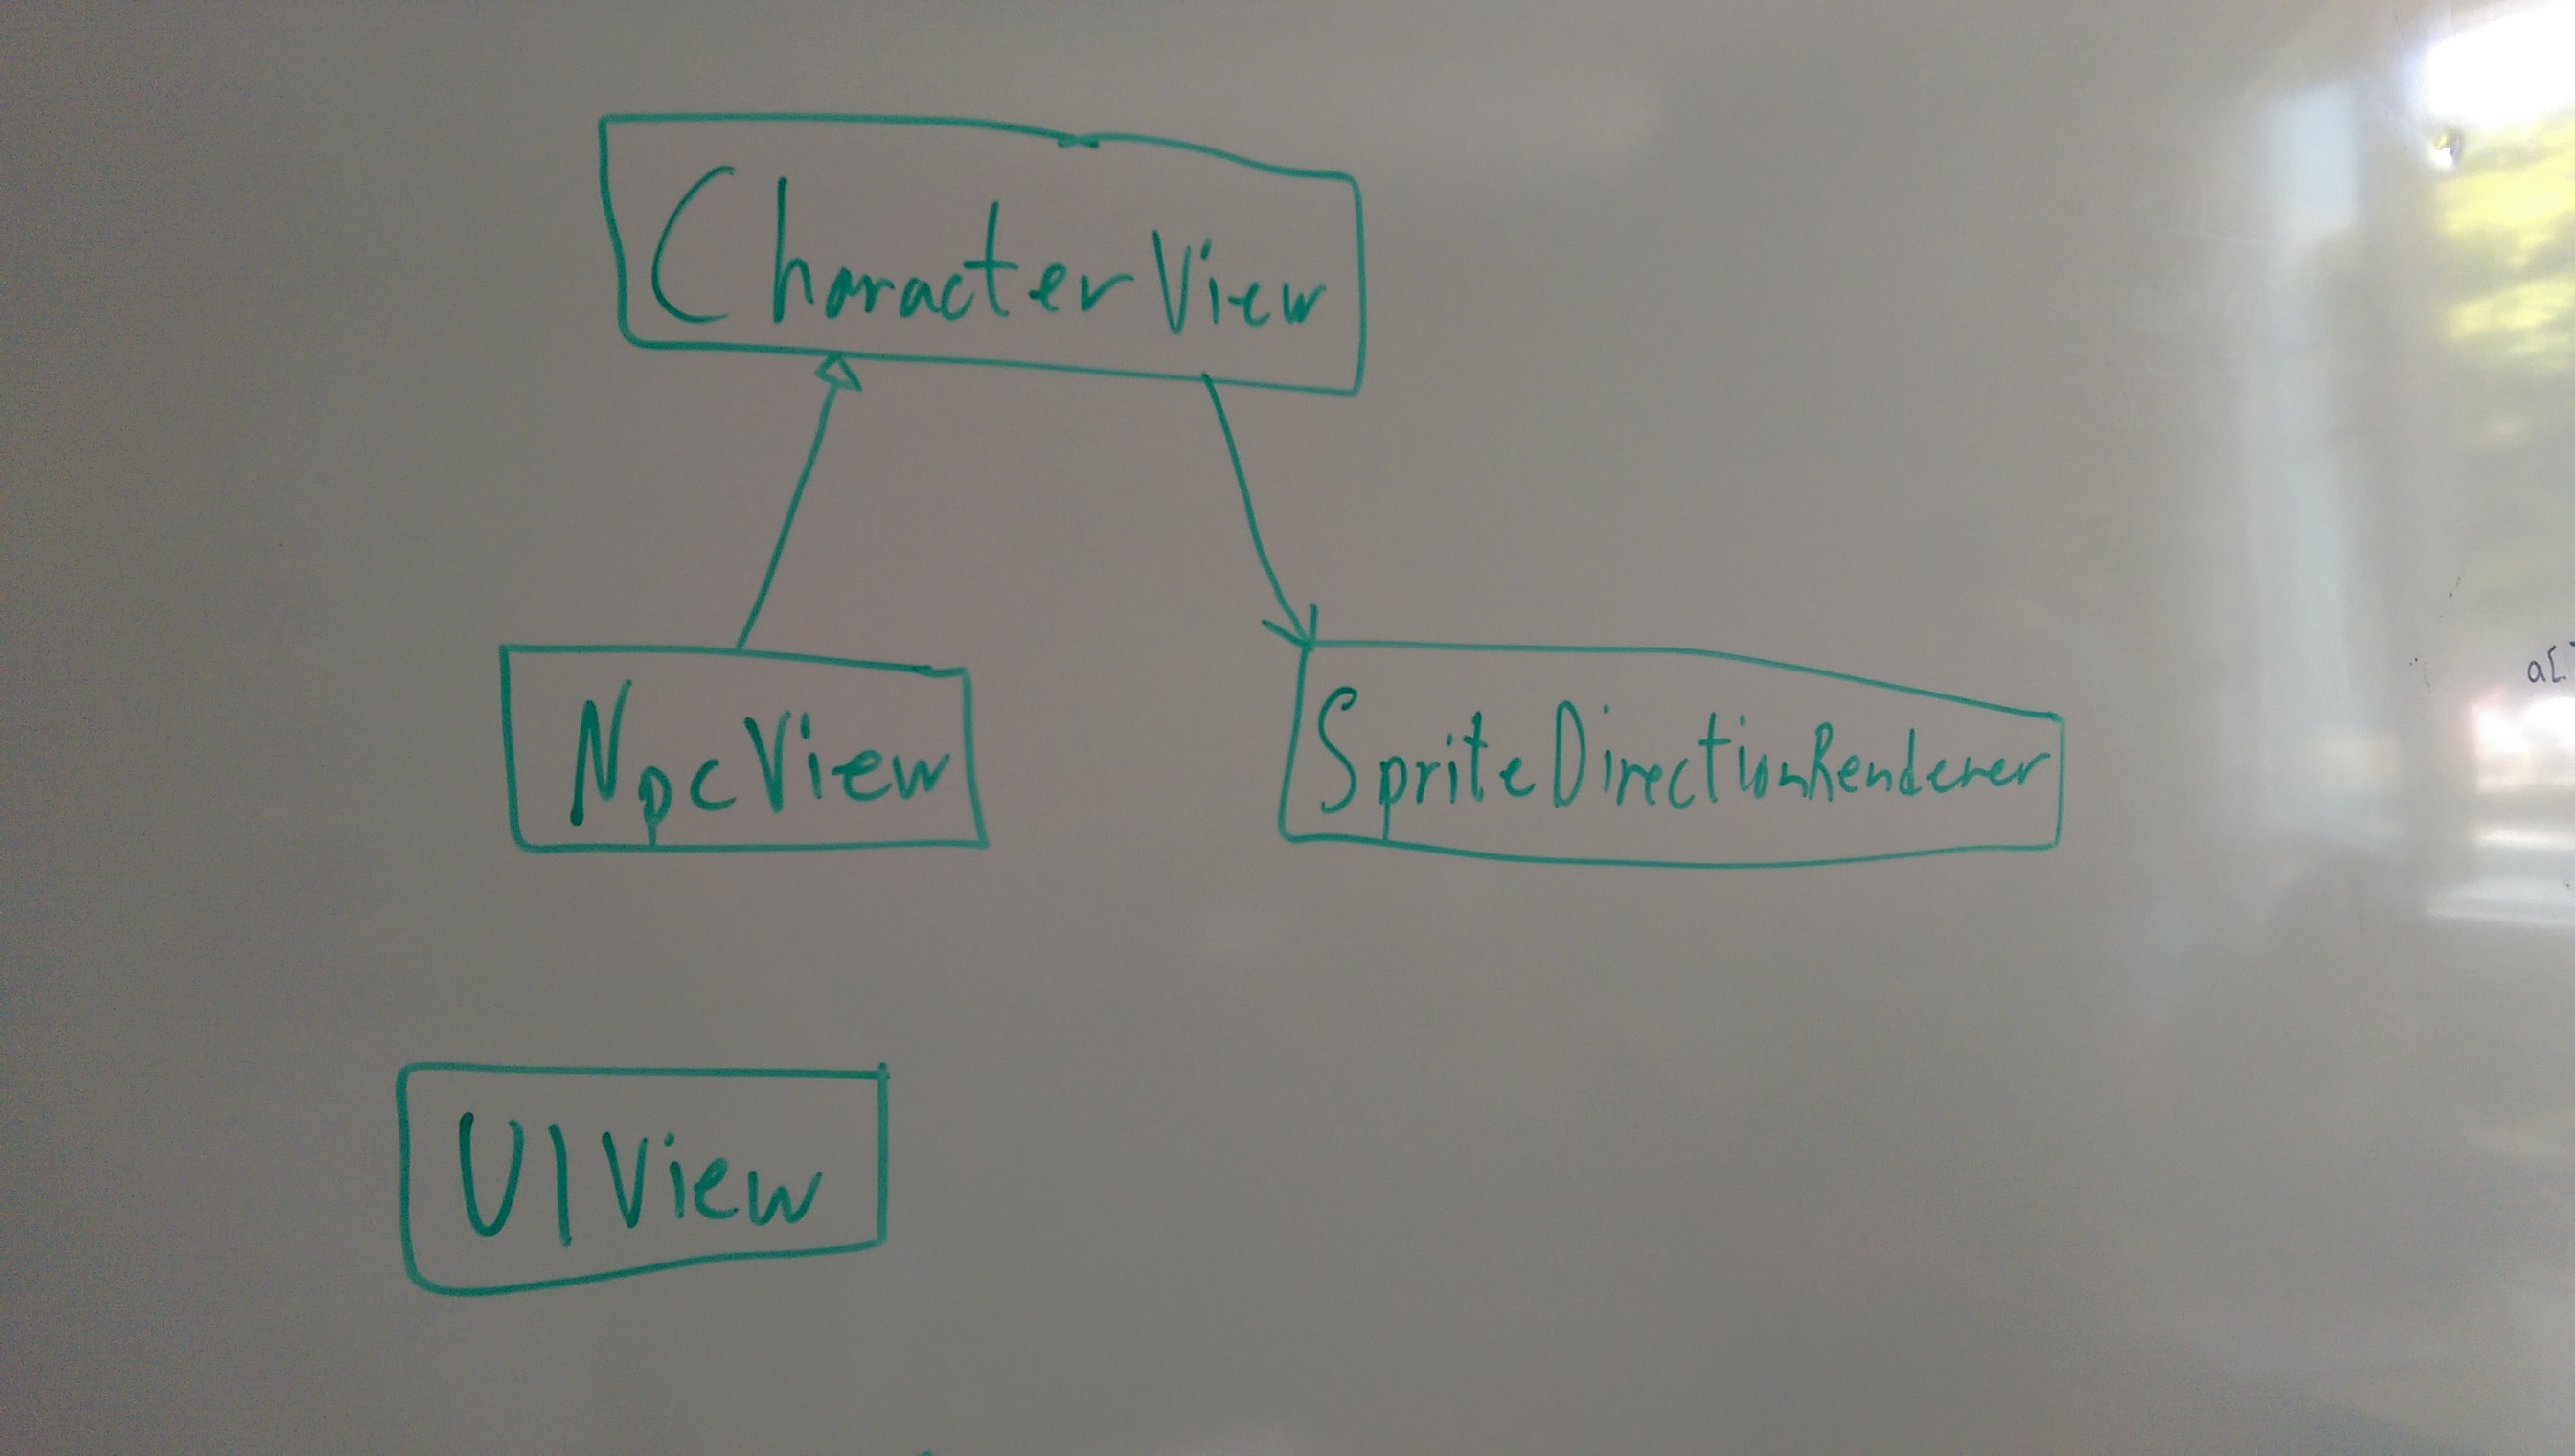 CharacterView
NpcView
SpriteDirectionRenderer
UIView